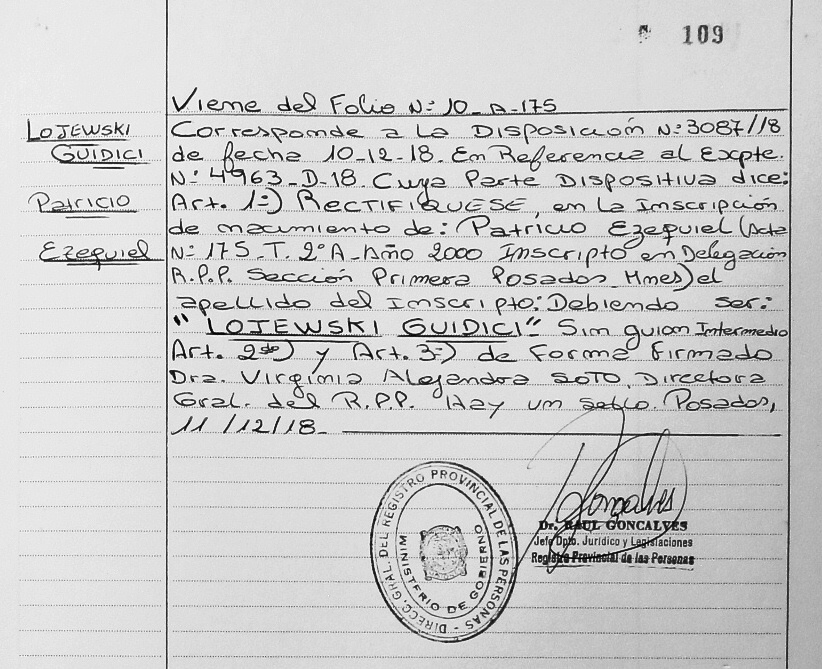 109
Viene del Folio N:10_A-175
LOJEWSKI
GUIDICI
Patricio
Ezequiel
Corresponde a La Disposición N:3087//18
de fecha 10-12-18. En Referencia al Expte.
N:4963_D-18. Cuya Parte DISPOSITIVA dice:
Art. 1º) RECTIFIQUESE, en la Inscripción
de nacimiento de: Patricio Ezequiel (Acta
N:175_T. 2ºA-Año 2000 Inscripto en Delegación
R.P.P. Sección Primera Posadas_Mnes) el
apellido del Inscripto: Debiendo ser:
"LOJEWSKI GUIDICI" Sin guion Intermedio
Art. 2do) y Art. 3º) de Forma Firmado
Dra. Virginia Alejandra SOTO, Directora
Gral. del R.P.P. Hay un sello. Posadas,
11/12/18_
DIRECC. GRAL. DEL REGISTRO PROVINCIAL DE LAS PERSONAS -
MINISTERIO DE GOBIERNO
Goncalves
Dr. RAUL GONCALVES
Jefe Dpto. Jurídico y Legislaciones
Registro Provincial de las Personas